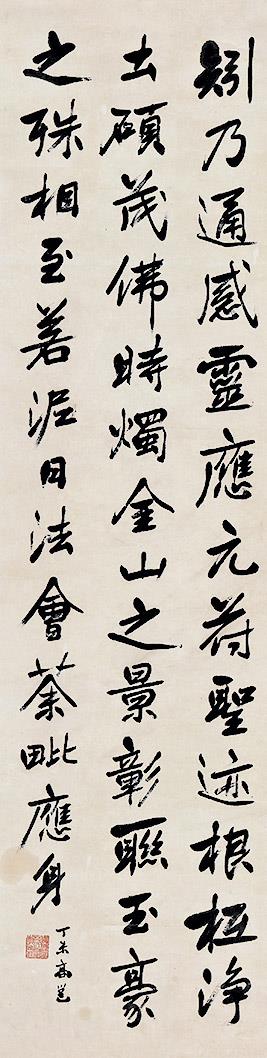 矧乃通感靈應元符聖迹根柢淨
土碩茂佛時燭金山之景彰聯玉豪
之殊相至若泥日法會荼毗應身
丁未高邕